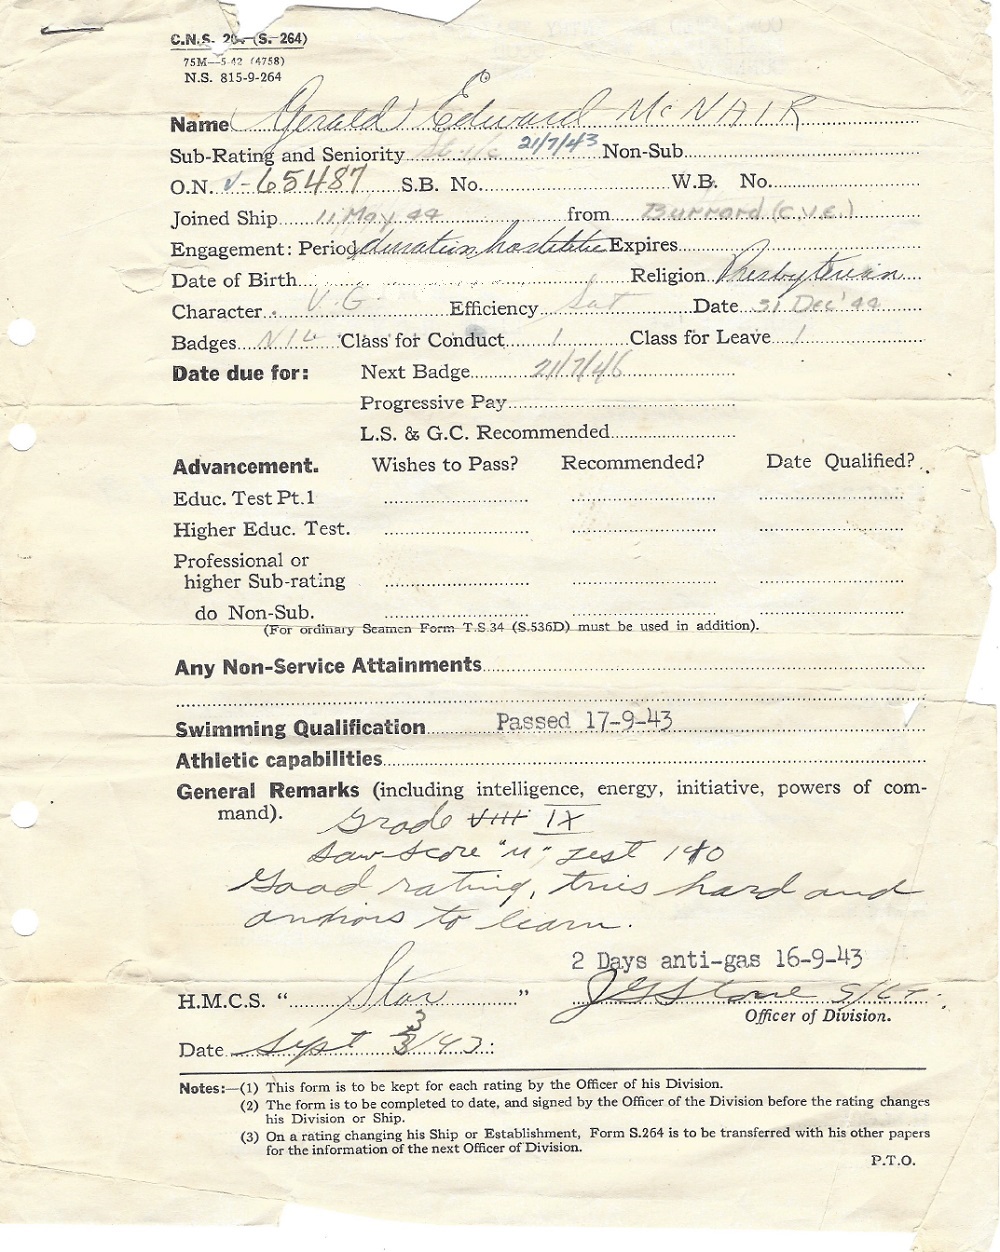 C.N.S. 264 (S. 264)
75M—5-42 (4758)
N.S. 815-9-264
Name Gerald Edward McNAIR
Sub-Rating and Seniority 21/7/43 Non-Sub.
O.N. V-65487 S.B. No. W.B. No.
Joined Ship 11 May 44 from Burrard (C.V.E.)
Engagement: Period duration hostilities Expires
Date of Birth Religion Presbyterian
Character V.G. Efficiency Sat Date 31 Dec '44
Badges NIL Class for Conduct 1 Class for Leave 1
Date due for: Next Badge 21/7/46
Progressive Pay
L.S. & G.C. Recommended
Advancement. Wishes to Pass? Recommended? Date Qualified?
Educ. Test Pt.1
Higher Educ. Test.
Professional or
higher Sub-rating
do Non-Sub.
(For ordinary Seamen Form T.S.34 (S.536D) must be used in addition).
Any Non-Service Attainments
Swimming Qualification Passed 17-9-43
Athletic capabilities
General Remarks (including intelligence, energy, initiative, powers of com-
mand).
Grade VIII IX
Raw Score "M" Test 140
Good rating, tries hard and
anxious to learn.
2 Days anti-gas 16-9-43
H.M.C.S. "Star" JGStone S/Lt.
Officer of Division.
Date Sept 3/43
Notes:—(1) This form is to be kept for each rating by the Officer of his Division.
(2) The form is to be completed to date, and signed by the Officer of the Division before the rating changes
his Division or Ship.
(3) On a rating changing his Ship or Establishment, Form S.264 is to be transferred with his other papers
for the information of the next Officer of Division.
P.T.O.